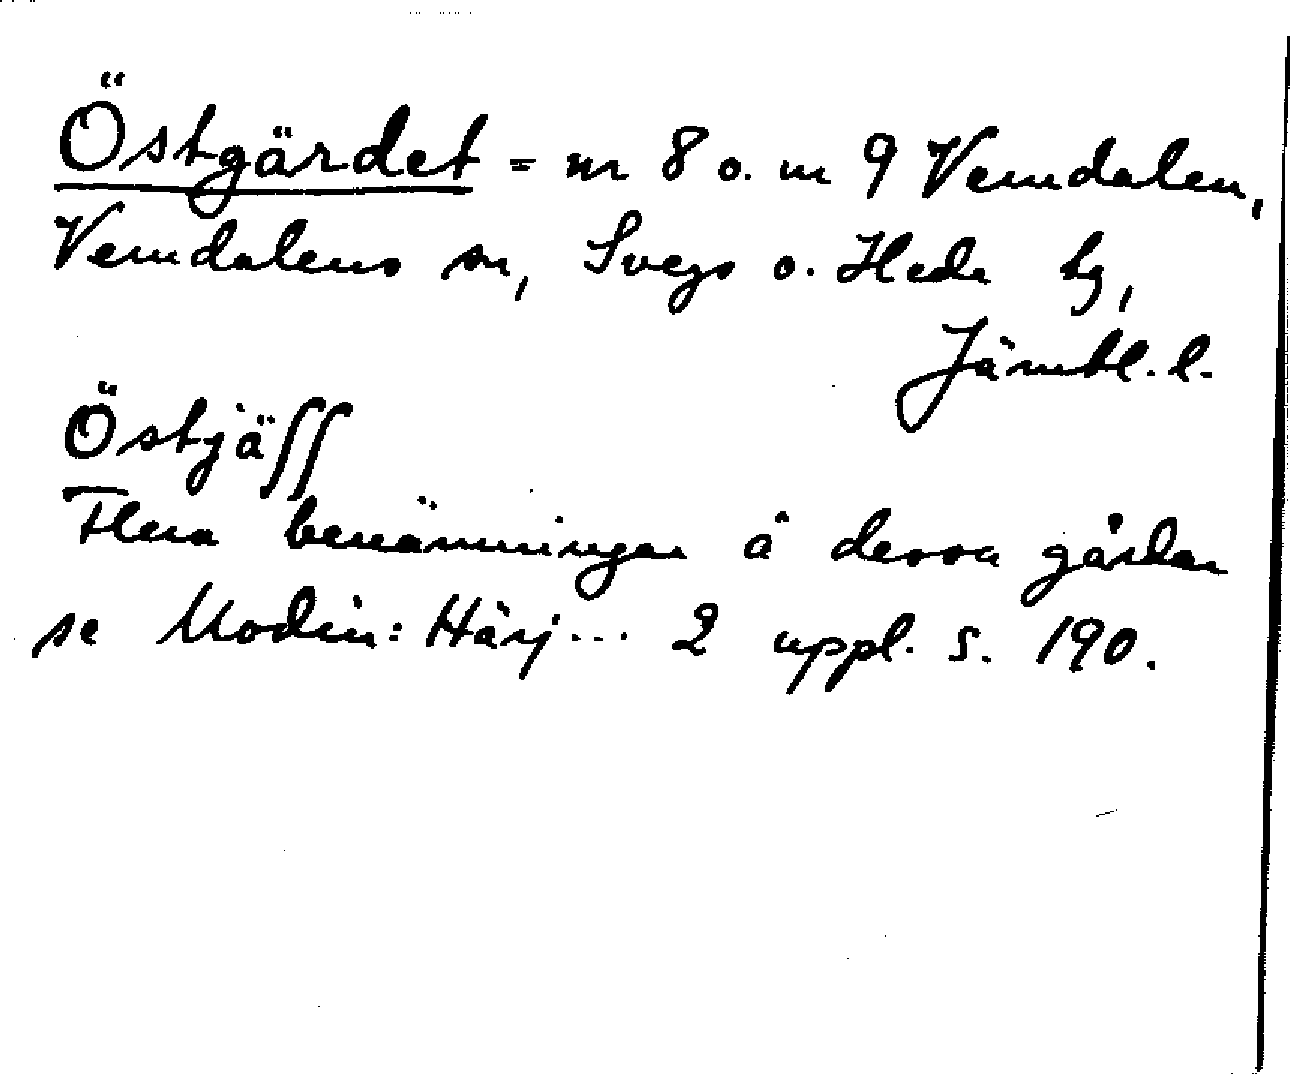 Östgärdet = nr 8 o. nr 9 Vemdalen,
Vemdalens sn, Svegs o. Hede tg,
Jämtl. l.
Östjäſſ
Flera benämningar å dessa gårdar
se Modin: Härj... 2 uppl. s. 190.